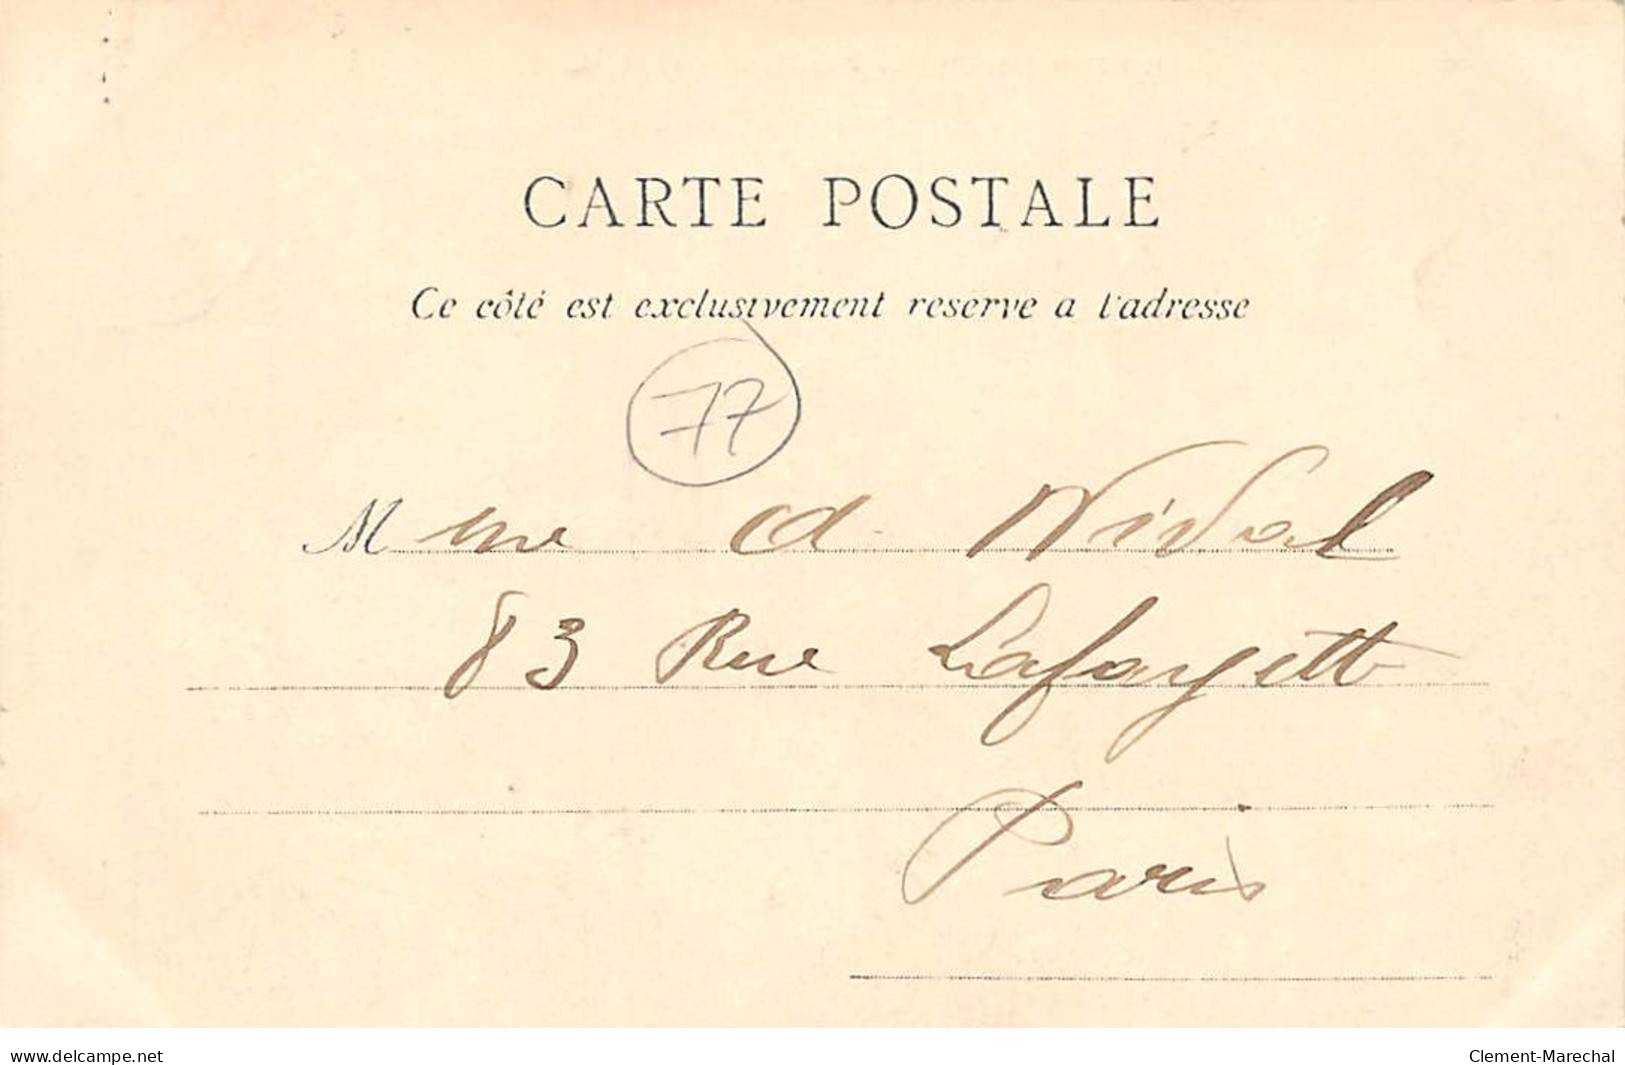 CARTE POSTALE
Ce côté est exclusivement reserve a l'adresse
77
Mme d. Nival
83 Rue Lafayette
Paris
www.delcampe.net
Clement-Marechal